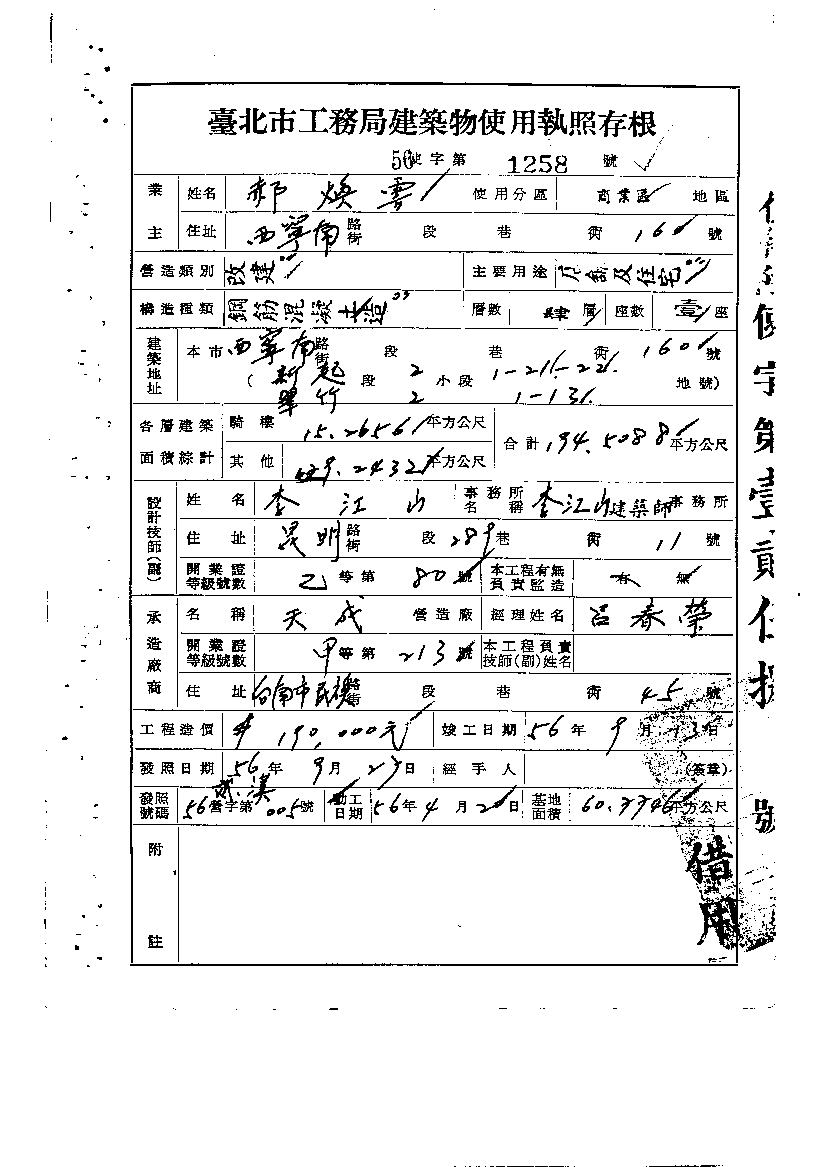 臺北市工務局建築物使用執照存根
56使字第 1258 號
業主 姓名 郝煥雲 使用分區 商業區 地區
住址 西寧南 路街 段 巷 街 160 號
營造類別 改建 主要用途 店舖及住宅
構造種類 鋼筋混凝土造 層數 肆層 座數 壹座
建築地址 本市 西寧南 路街 段 巷 街 160 號
(新起 段 2 小段 1-21.-22. 地號)
翠竹 2 1-13.
各層建築面積綜計 騎樓 15.2656 平方公尺 合計 194.5088 平方公尺
其他 179.2432 平方公尺
設計技師(副) 姓名 李江山 事務所名稱 李江山建築師事務所
住址 昆明 路街 段 289 巷 街 11 號
開業證等級號數 乙等第 80 號 本工程有無負責監造 有 無
承造廠商 名稱 天成 營造廠 經理姓名 呂春榮
開業證等級號數 甲等第 213 號 本工程負責技師(副)姓名
住址 台南市民權 路街 段 巷 街 45 號
工程造價 $190,000元 竣工日期 56年9月13日
發照日期 56年9月23日 經手人 (簽章)
發照號碼 56營字第005號 動工日期 56年4月20日 基地面積 60.3346平方公尺
附註
借用